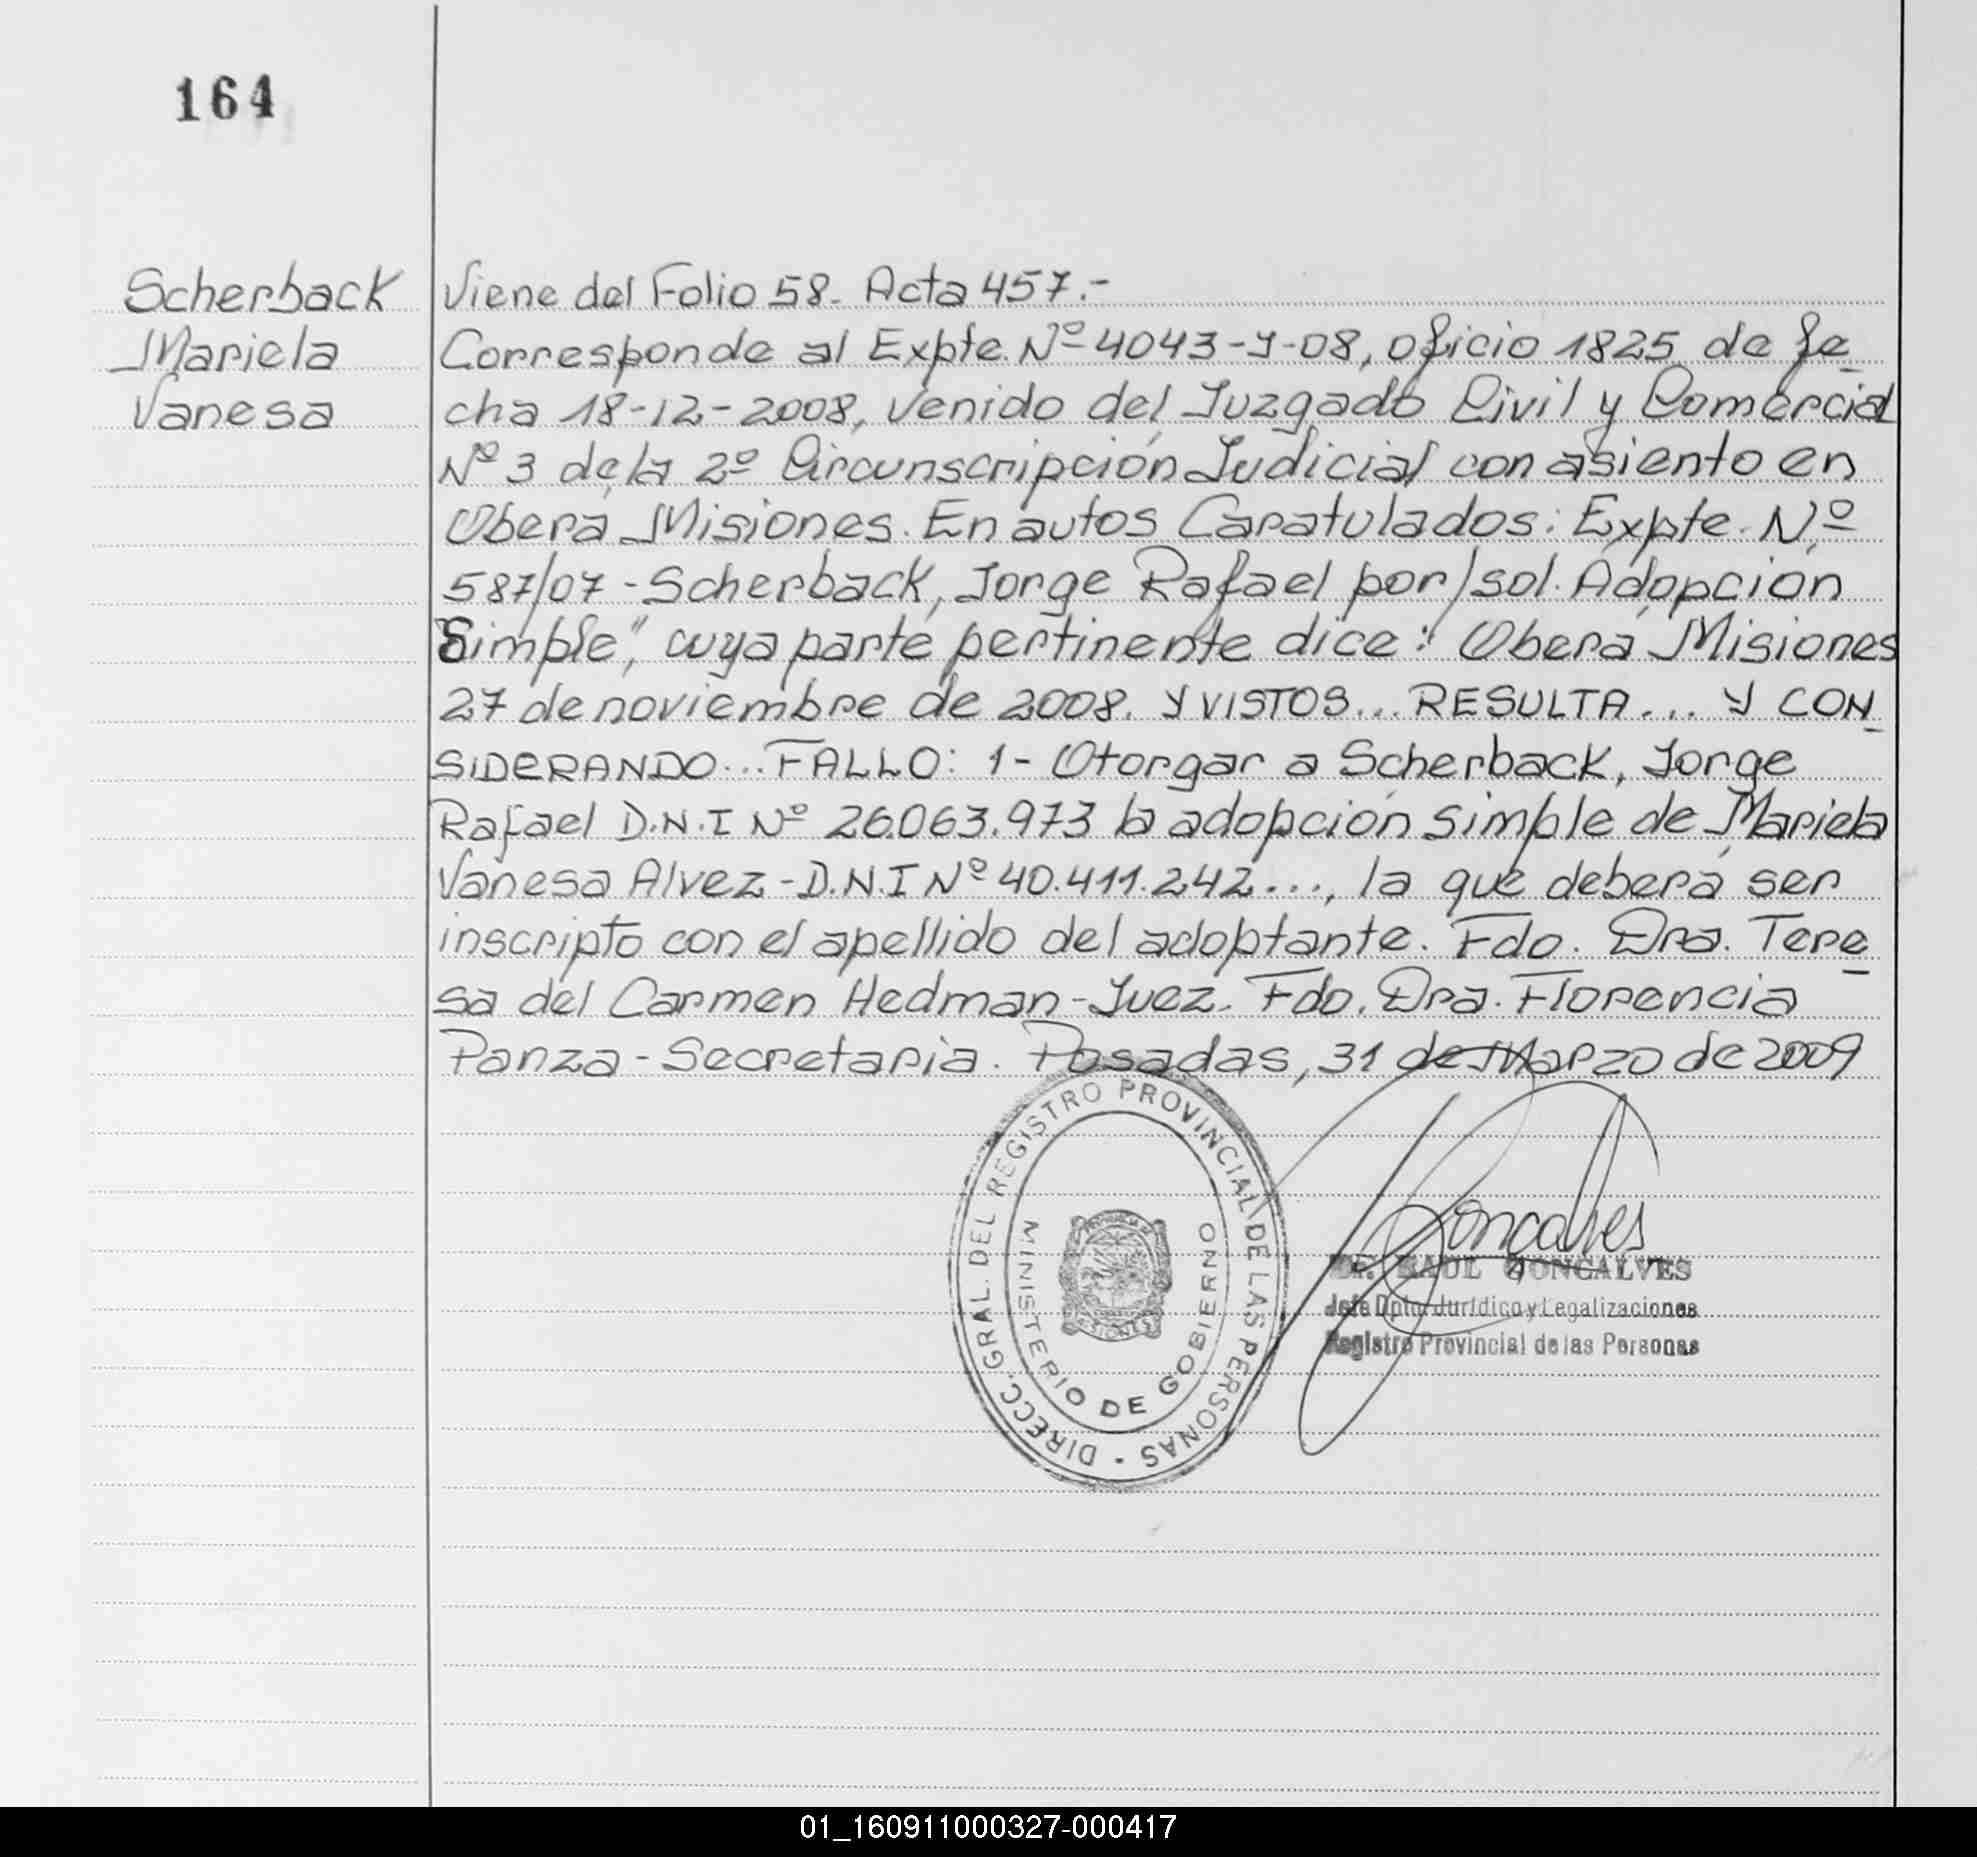 164
Scherback
Mariela
Vanesa
Viene del Folio 58. Acta 457.-
Corresponde al Expte. Nº 4043-Y-08, oficio 1825 de fe
cha 18-12-2008, venido del Juzgado Civil y Comercial
Nº 3 de la 2º Circunscripción Judicial con asiento en
Oberá Misiones. En autos Caratulados: Expte. N.º
587/07 - Scherback, Jorge Rafael por/sol. Adopción
Simple", cuya parte pertinente dice: Oberá Misiones
27 de noviembre de 2008. Y VISTOS... RESULTA... Y CON
SIDERANDO... FALLO: 1- Otorgar a Scherback, Jorge
Rafael D.N.I Nº 26.063.973 la adopción simple de Mariela
Vanesa Alvez - D.N.I Nº 40.411.242..., la que deberá ser
inscripto con el apellido del adoptante. Fdo. Dra. Tere
sa del Carmen Hedman - Juez. Fdo. Dra. Florencia
Panza - Secretaria. Posadas, 31 de Marzo de 2009
DIRECC. GRAL. DEL REGISTRO PROVINCIAL DE LAS PERSONAS -
MINISTERIO DE GOBIERNO
MISIONES
Goncalves
Dr. RAUL GONCALVES
Jefe Dpto. Jurídico y Legalizaciones
Registro Provincial de las Personas
01_160911000327-000417